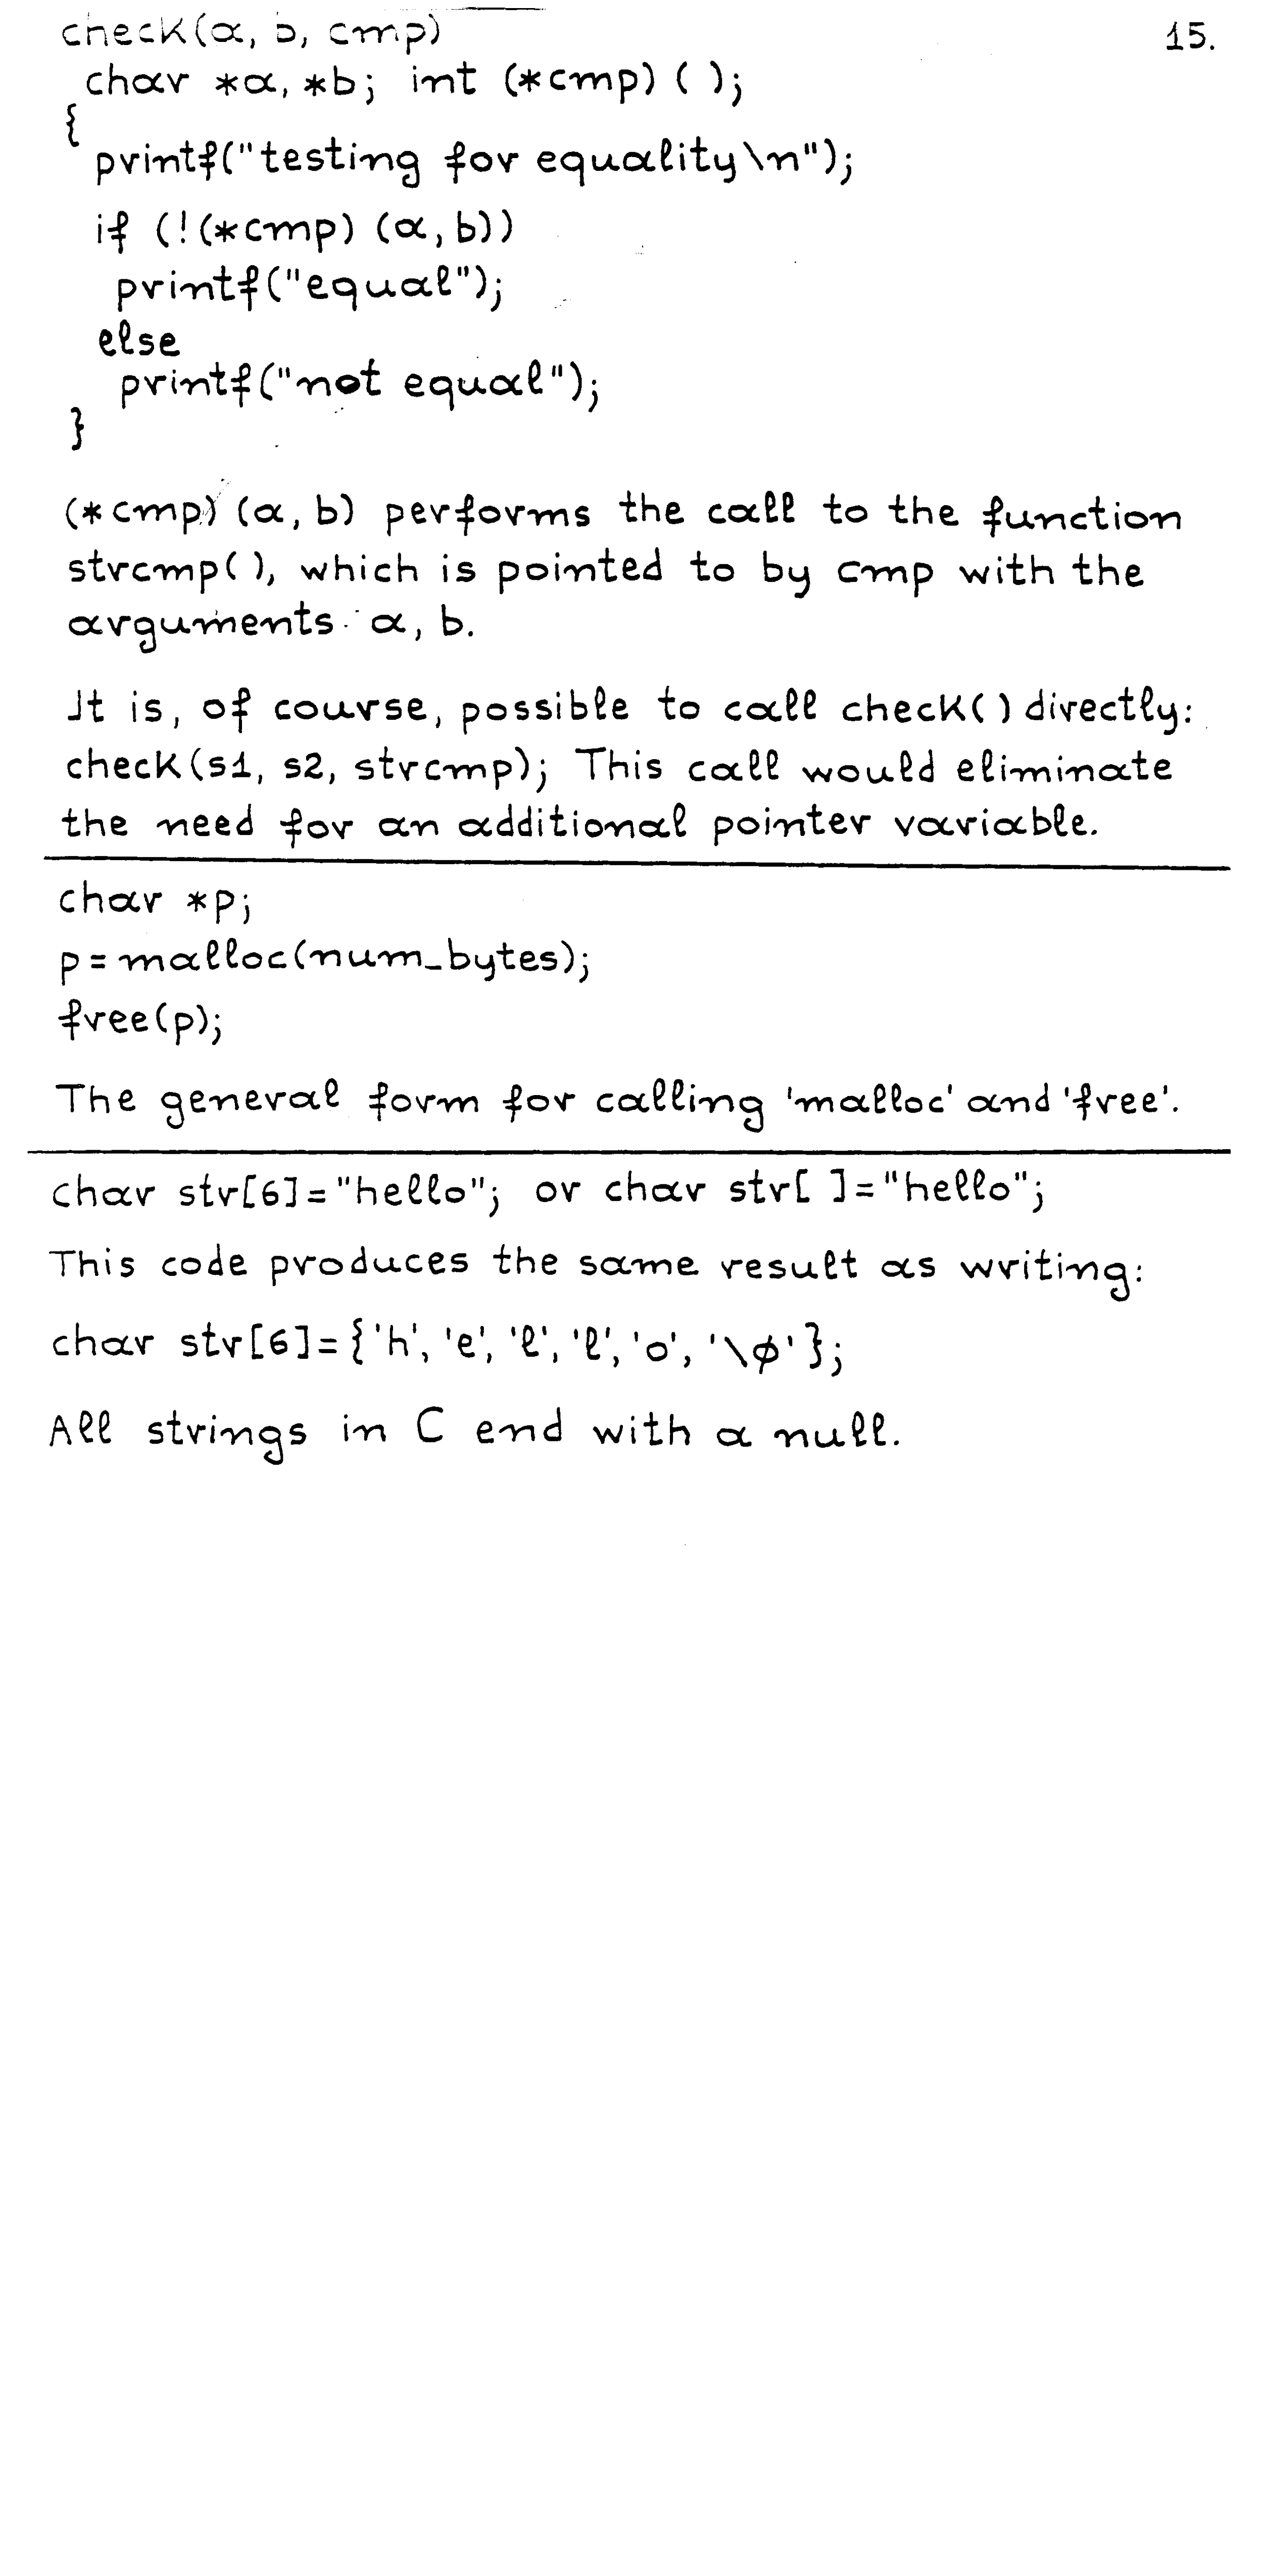 check(a, b, cmp)
15.
char *a, *b; int (*cmp) ( );
{
printf("testing for equality\n");
if (!(*cmp) (a, b))
printf("equal");
else
printf("not equal");
}
(*cmp) (a, b) performs the call to the function
strcmp( ), which is pointed to by cmp with the
arguments a, b.
It is, of course, possible to call check( ) directly:
check(s1, s2, strcmp); This call would eliminate
the need for an additional pointer variable.
char *p;
p = malloc(num_bytes);
free(p);
The general form for calling 'malloc' and 'free'.
char str[6] = "hello"; or char str[ ] = "hello";
This code produces the same result as writing:
char str[6] = {'h', 'e', 'l', 'l', 'o', '\0'};
All strings in C end with a null.